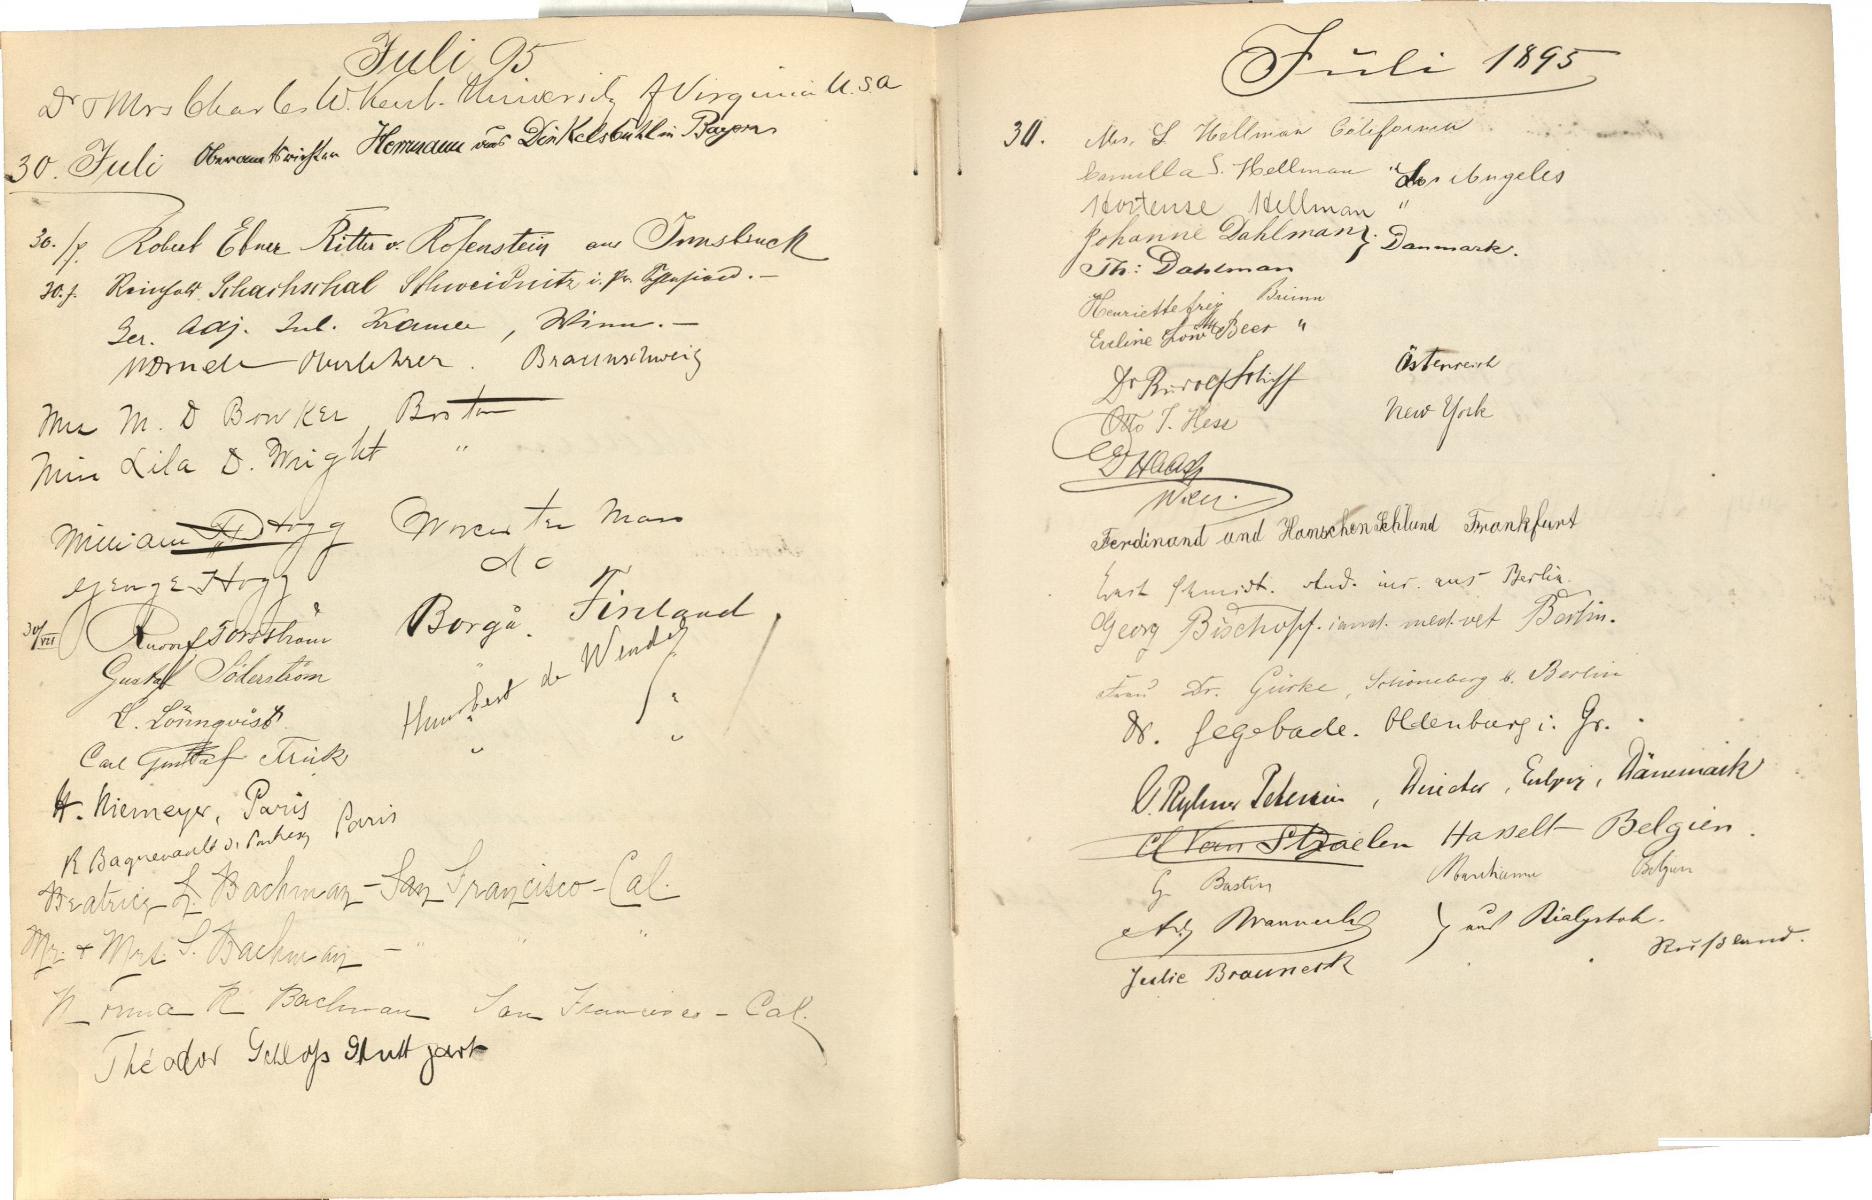 Juli 95
Dr & Mrs Charles W. Kent. University of Virginia U.S.A
30. Juli Oberamtsrichter Herrmann aus Dinkelsbühl in Bayern
30./7. Robert Ebner Ritter v. Rofenstein aus Innsbruck
30.7. Reinhold Schachschal Schweidnitz i. Pr. Schlesien.-
Ger. Adj. Jul. Kramer, Wien.-
Oberlehrer. Braunschweig
Mrs M. D Bowker, Boston
Miss Lila D. Wright "
William Hogg Worcester Mass
George Hogg do
30/VII Rudolf Forsström Borgå. Finland
Gustaf Söderström "
L. Lönnqvist " "
Carl Gustaf Frick " "
Humbert de Wendel
H. Niemeyer, Paris
R Baguenault de Paris
Beatrice L. Bachman - San Francisco - Cal.
Mr. + Mrs. S. Bachman - " " "
Norma R Bachman San Francisco - Cal.
Théodor Schloß Stuttgart
Juli 1895
30. Mrs. S Hellman California
Camilla S. Hellman " Los Angeles
Hortense Hellman "
Johanne Dahlman } Danmark.
Th: Dahlman
Henriette Brünn
Euline Löw Beer "
Dr Rudolf Schiff Österreich
Otto T. Hess New York
D Haas
Wien.
Ferdinand und Hannchen Schlund Frankfurt
Ernst Schmidt. aus Berlin.
Georg Bischoff. cand. med. vet Berlin.
Frau Dr. Gürke, Schöneberg b. Berlin
Dr. Gegebade. Oldenburg i. Gr.
O. Petersen, Director, Dänemark
Van Straelen Hasselt Belgien.
G Bastin Belgien
} aus Bialystok.
Julie Brauneck Rußland.